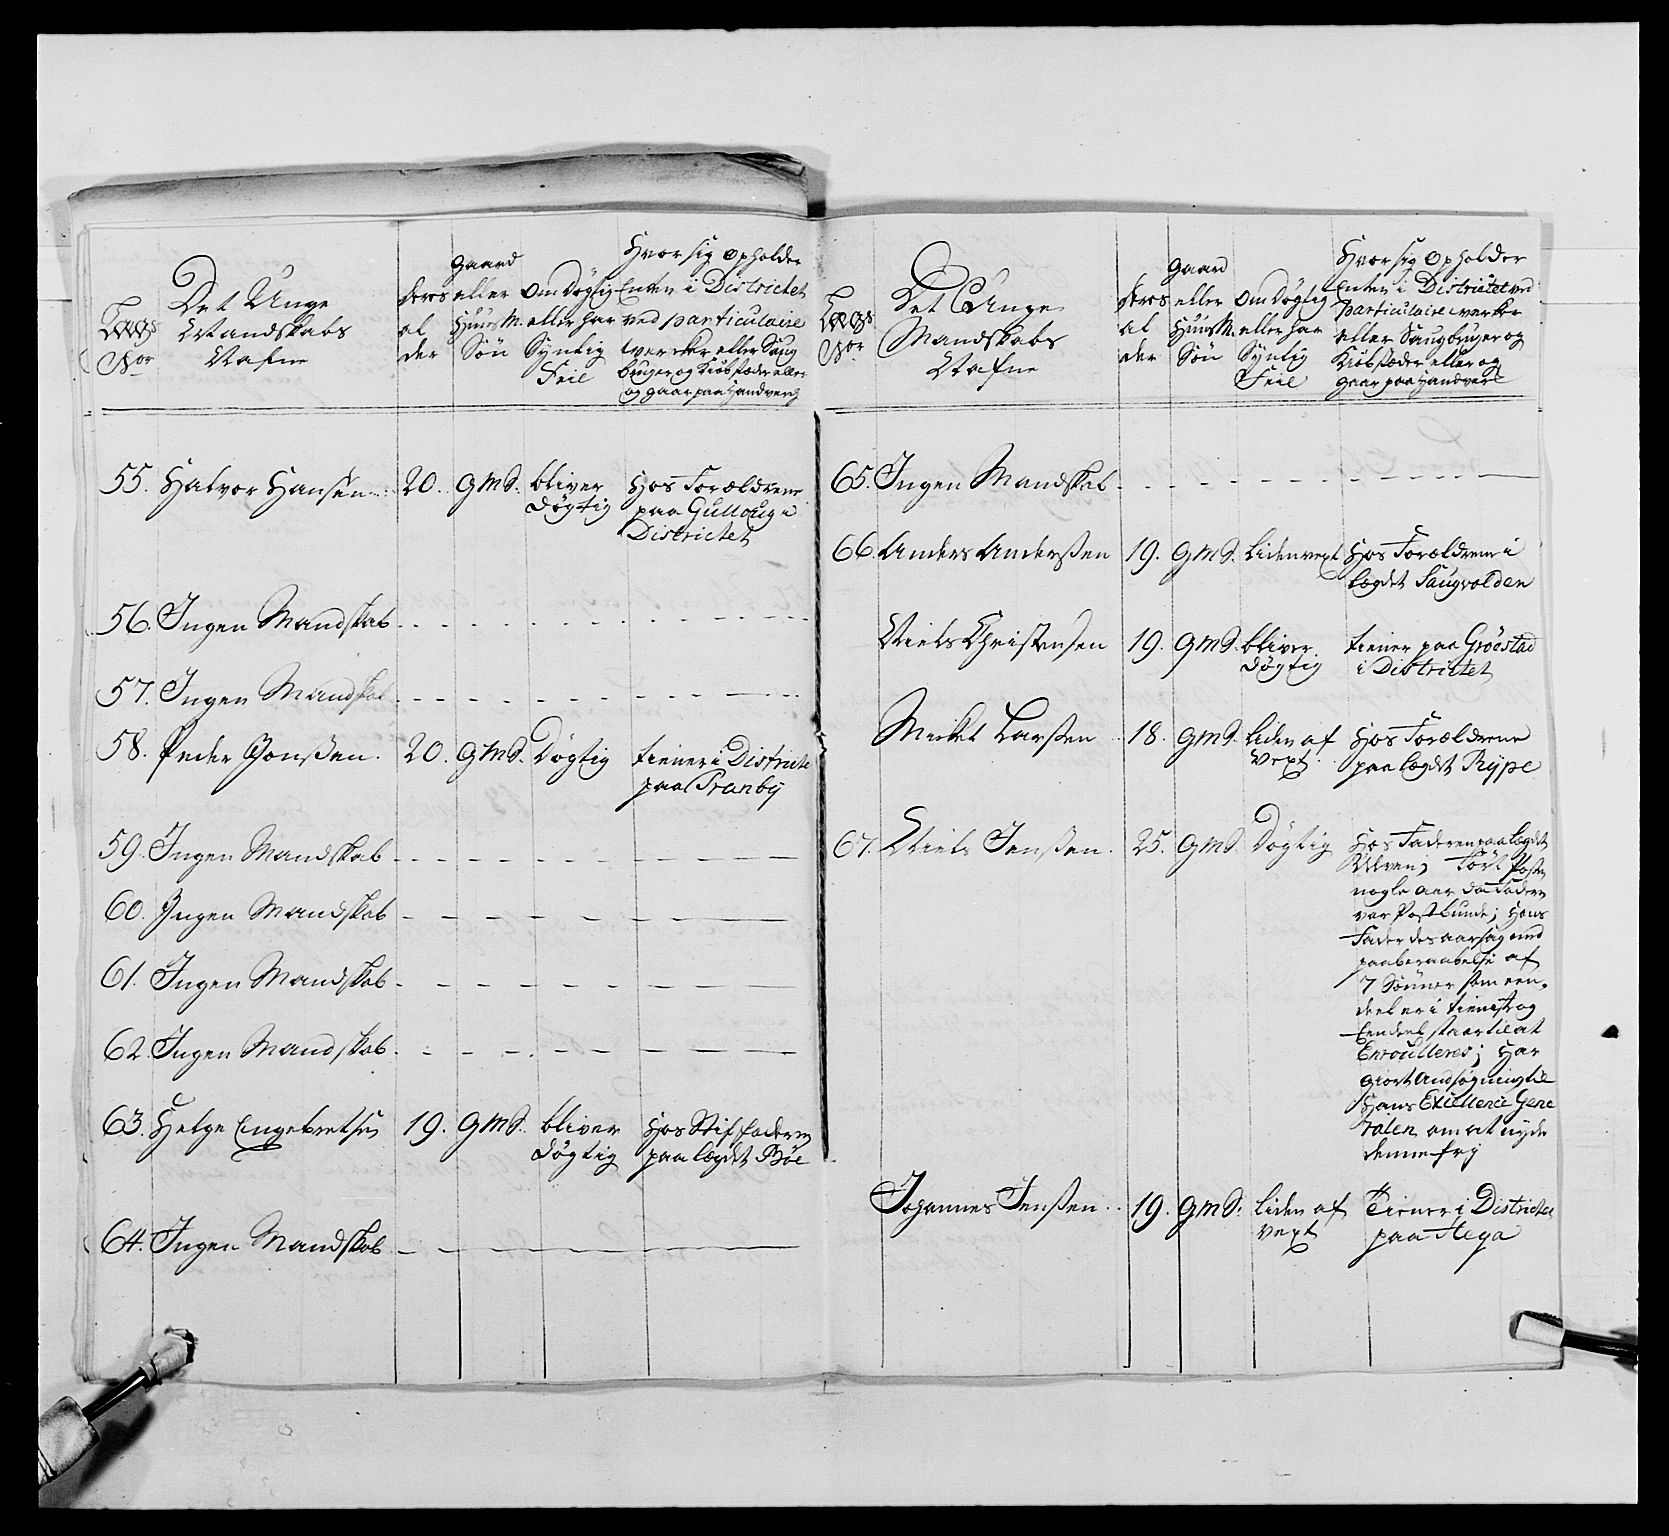 Legds No.
Det Unge
Mandskabs
Nafne
deres
al
der
gaard
eller
HuusM.
Søn
Om Døgtig
eller har
Synlig
Feil
Hvor sig opholder
Enten i Districtet
ved particulaire
wercker eller Saug
bruger og Kiøbstæder eller
og gaar paa Handverch
55. Halvor Hansen 20. GMS. bliver Døgtig
Hos Forældrene
paa Gulloug i
Districtet
56. Ingen Mandskab
57. Ingen Mandskab
58. Peder Jonssen. 20. GMS. Døgtig
tiener i District
paa Tranby
59. Ingen Mandskab
60. Ingen Mandskab
61. Ingen Mandskab
62. Ingen Mandskab
63. Helge Engebretsen 19. GMS. bliver Døgtig
Hos Stiffaderen
paa Legdet Bøe
64. Ingen Mandskab
Legds No.
Det Unge
Mandskabs
Nafne
deres
al
der
Gaard
eller
HuusM.
Søn
Om Døgtig
eller har
Synlig
Feil
Hvor sig opholder
Enten i Districtet ved
particulaire wercker
eller Saugbruger og
Kiøbstæder eller og
gaar paa Handverk
65. Ingen Mandskab
66. Anders Anderssen 19. GMS. Liden vext
Hos Forældrene i
Legdet Saugvolden
Niels Christensen 19. GMS. bliver Døgtig
tiener paa Grøostad
i Districtet
Mickel Larssen 18. GMS. Liden af vext
Hos Forældrene
paa Legdet Rype
67. Niels Jenssen. 25. GMS. Døgtig
Hos Faderen paa Legdet
Ulven; Ført Posten
nogle aar da Faderen
var Postbunde; Hans
Fader des aarsag med
paaberaabelse af
7 Sønner som een-
deel er i tieniste og
Eendeel staar til at
Enroulleres; Har
giort Ansøgning til
Hans Excellence Gene
ralen om at nyde
denne frj
Johannes Jenssen 19. GMS. Liden af vext
Tiener i District
paa Hega